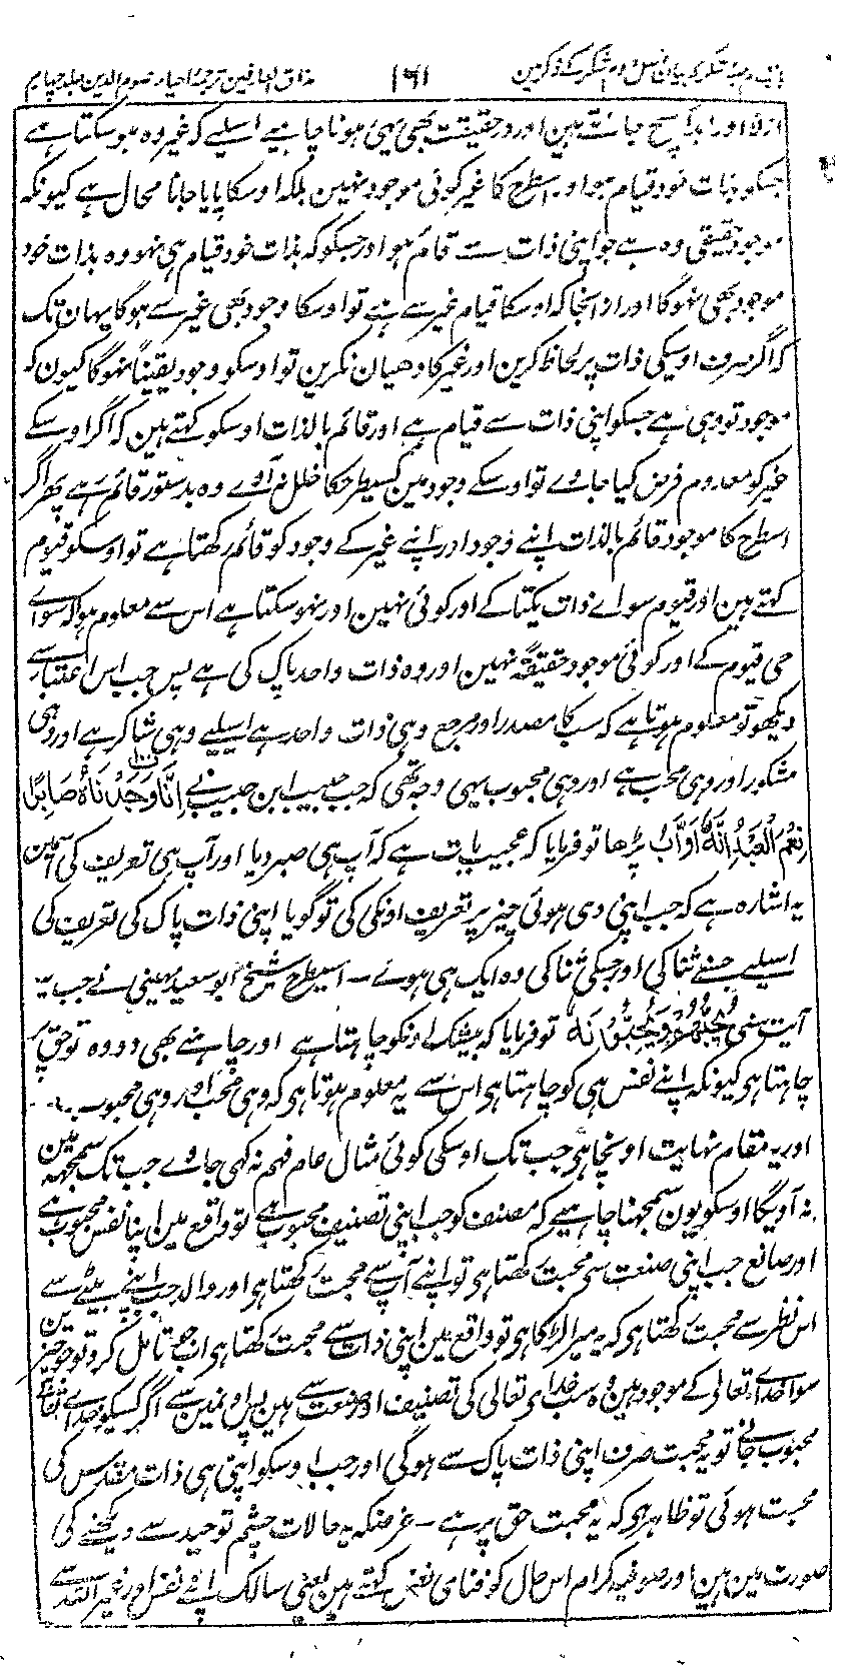 مذاق العارفین ترجمہ احیاء علوم الدین جلد چہارم ۱۶۱ شکر کے بیان
ازلاً اور ابداً سچ جانتے ہین اور درحقیقت بھی یہی ہونا چاہیے اسلیے کہ غیر وہ ہو سکتا ہے
جسکو بذات خود قیام ہو اور اسطرح کا غیر کوئی موجود نہین بلکہ اوسکا پایا جانا محال ہے کیونکہ
موجود حقیقی وہ ہے جو اپنی ذات سے قائم ہو اور جسکو کہ بذات خود قیام ہی نہو وہ بذات خود
موجود بھی نہوگا اور ازانجا کہ اوسکا قیام غیر سے ہے تو اوسکا وجود بھی غیر سے ہوگا یہان تک
کہ اگر صرف اوسیکی ذات پر لحاظ کرین اور غیر کا دھیان نکرین تو اوسکو وجود یقیناً نہوگا کیون کہ
موجود تو وہی ہے جسکو اپنی ذات سے قیام ہے اور قائم بالذات اوسکو کہتے ہین کہ اگر اوسکے
غیر کو معدوم فرض کیا جاوے تو اوسکے وجود مین کسیطرحکا خلل نہ آوے وہ بدستور قائم رہے پھر اگر
اسطرح کا موجود قائم بالذات اپنے وجود اور اپنے غیر کے وجود کو قائم رکھتا ہے تو اوسکو قیوم
کہتے ہین اور قیوم سواے ذات یکتا کے اور کوئی نہین اور نہو سکتا ہے اس سے معلوم ہوا کہ سواے
حی قیوم کے اور کوئی موجود حقیقۃً نہین اور وہ ذات واحد پاک کی ہے پس جب اس اعتبار سے
دیکھو تو معلوم ہوتا ہے کہ سب کا مصدر اور مرجع وہی ذات واحد ہے اسلیے وہی شاکر ہے اور وہی
مشکور اور وہی محب ہے اور وہی محبوب یہی وجہ تھی کہ جب حبیب ابن حبیب نے اِنَّا وَجَدْنَاهُ صَابِرًا
نِعْمَ الْعَبْدُ اِنَّهٗ اَوَّابٌ پڑھا تو فرمایا کہ عجیب بات ہے کہ آپ ہی صبر دیا اور آپ ہی تعریف کی اسمین
یہ اشارہ ہے کہ جب اپنی دی ہوئی چیز پر تعریف اونکی کی تو گویا اپنی ذات پاک کی تعریف کی
اسلیے جسنے ثنا کی اور جسکی ثنا کی وہ ایک ہی ہوے ۔ اسیطرح شیخ ابو سعید مہینی نے جب یہ
آیت سنی یُحِبُّهُمْ وَیُحِبُّوْنَهٗ تو فرمایا کہ بیشک اونکو چاہتا ہے اور چاہنے بھی دو وہ تو حق پر
چاہتا ہی کیونکہ اپنے نفس ہی کو چاہتا ہی اس سے یہ معلوم ہوتا ہی کہ وہی محب اور وہی محبوب
اور یہ مقام نہایت اونچا ہی جب تک اوسکی کوئی مثال عام فہم نہ کہی جاوے جب تک سمجھہ مین
نہ آویگا اوسکو یون سمجھنا چاہیے کہ مصنف کو جب اپنی تصنیف محبوب ہے تو واقع مین اپنا نفس محبوب ہے
اور صانع جب اپنی صنعت سے محبت رکھتا ہی تو اپنے آپ سے محبت رکھتا ہی اور والد جب اپنے بیٹے سے
اس نظر سے محبت رکھتا ہی کہ یہ میرا لڑکا ہی تو واقع مین اپنی ذات سے محبت رکھتا ہی اب جو تامل کرو تو جو چیزین
سواے خداے تعالی کے موجود ہین وہ سب خداے تعالی کی تصنیف اور صنعت سے ہین پس اونمین سے اگر کسیکو خداے تعالی
محبوب جانے تو یہ محبت صرف اپنی ذات پاک سے ہوگی اور جب اوسکو اپنی ہی ذات مقدس کی
محبت ہوئی تو ظاہر ہی کہ یہ محبت حق پر ہے ۔ غرضکہ یہ حالات چشم توحید سے دیکھنے کی
صورت مین ہین اور صوفیہ کرام اس حال کو فناے نفس کہتے ہین یعنی سالک اپنے نفس اور غیر اللہ سے